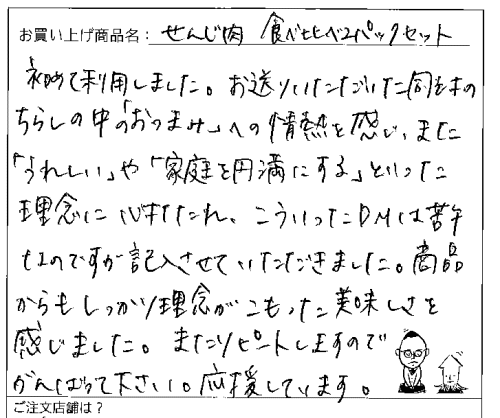 お買い上げ商品名: せんじ肉 食べ比べ2パックセット
初めて利用しました。お送りいただいた同封の
ちらしの中の「おつまみ」への情熱を感じ、また
「うれしい」や「家庭を円満にする」といった
理念に心打たれ、こういったDMは苦手
なのですが記入させていただきました。商品
からもしっかり理念がこもった美味しさを
感じました。またリピートしますので
がんばって下さい。応援しています。
ご注文店舗は?